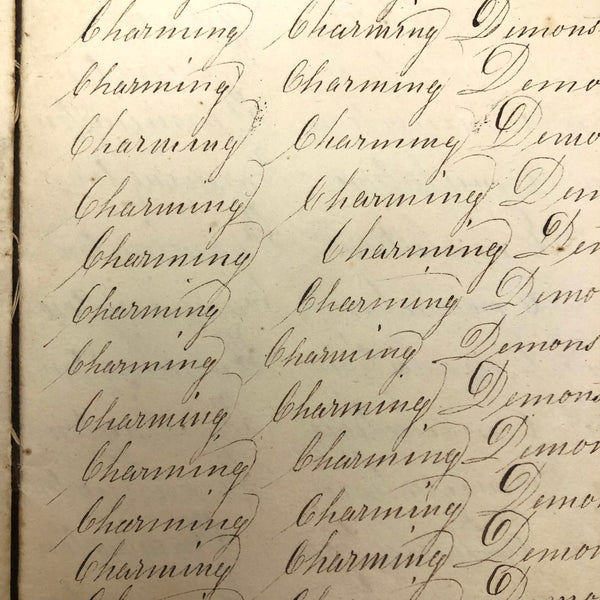 Charming Charming Demons
Charming Charming Demo
Charming Charming Demo
Charming Charming Dem
Charming Charming Den
Charming Charming Demo
Charming Charming Demons
Charming Charming Demons
Charming Charming Demon
Charming Charming Demo
Charming Charming Demon